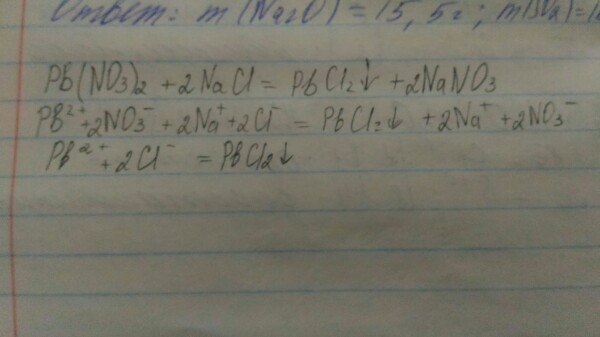 Ответ: m(Na2O) = 15,5г; m(
Pb(NO3)2 + 2NaCl = PbCl2↓ + 2NaNO3
Pb²⁺ + 2NO3⁻ + 2Na⁺ + 2Cl⁻ = PbCl2↓ + 2Na⁺ + 2NO3⁻
Pb²⁺ + 2Cl⁻ = PbCl2↓